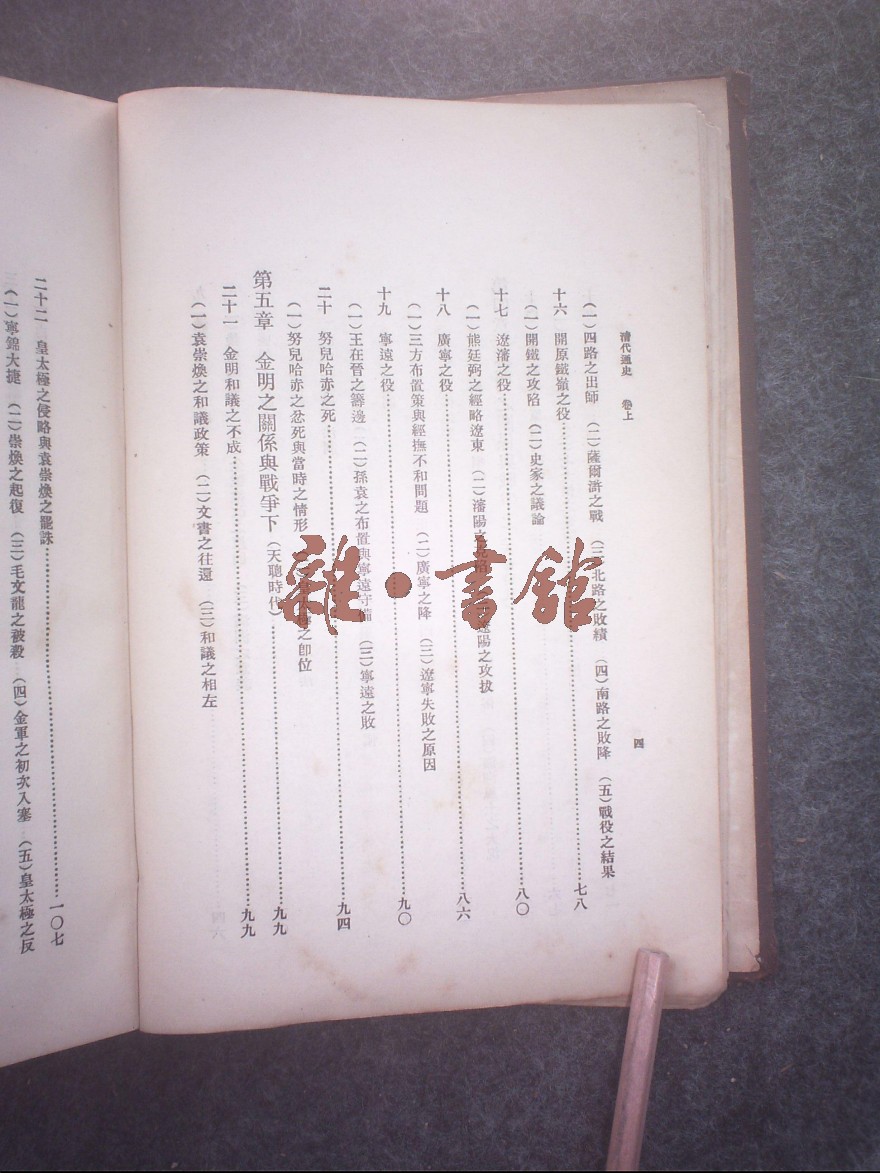 清代通史 卷上
四
(一)四路之出師 (二)薩爾滸之戰 (三)北路之敗績 (四)南路之敗降 (五)戰役之結果
十六 開原鐵嶺之役……七八
(一)開鐵之攻陷 (二)史家之議論
十七 遼瀋之役……八〇
(一)熊廷弼之經略遼東 (二)瀋陽之 遼陽之攻拔
十八 廣寧之役……八六
(一)三方布置策與經撫不和問題 (二)廣寧之降 (三)遼寧失敗之原因
十九 寧遠之役……九〇
(一)王在晉之籌邊 (二)孫袁之布置與寧遠守備 (三)寧遠之敗
二十 努兒哈赤之死……九四
(一)努兒哈赤之忿死與當時之情形 之卽位
第五章 金明之關係與戰爭下(天聰時代)……九九
二十一 金明和議之不成……九九
(一)袁崇煥之和議政策 (二)文書之往還 (三)和議之相左
二十二 皇太極之侵略與袁崇煥之罷誅……一〇七
(一)寧錦大捷 (二)崇煥之起復 (三)毛文龍之被殺 (四)金軍之初次入塞 (五)皇太極之反
雜·書館